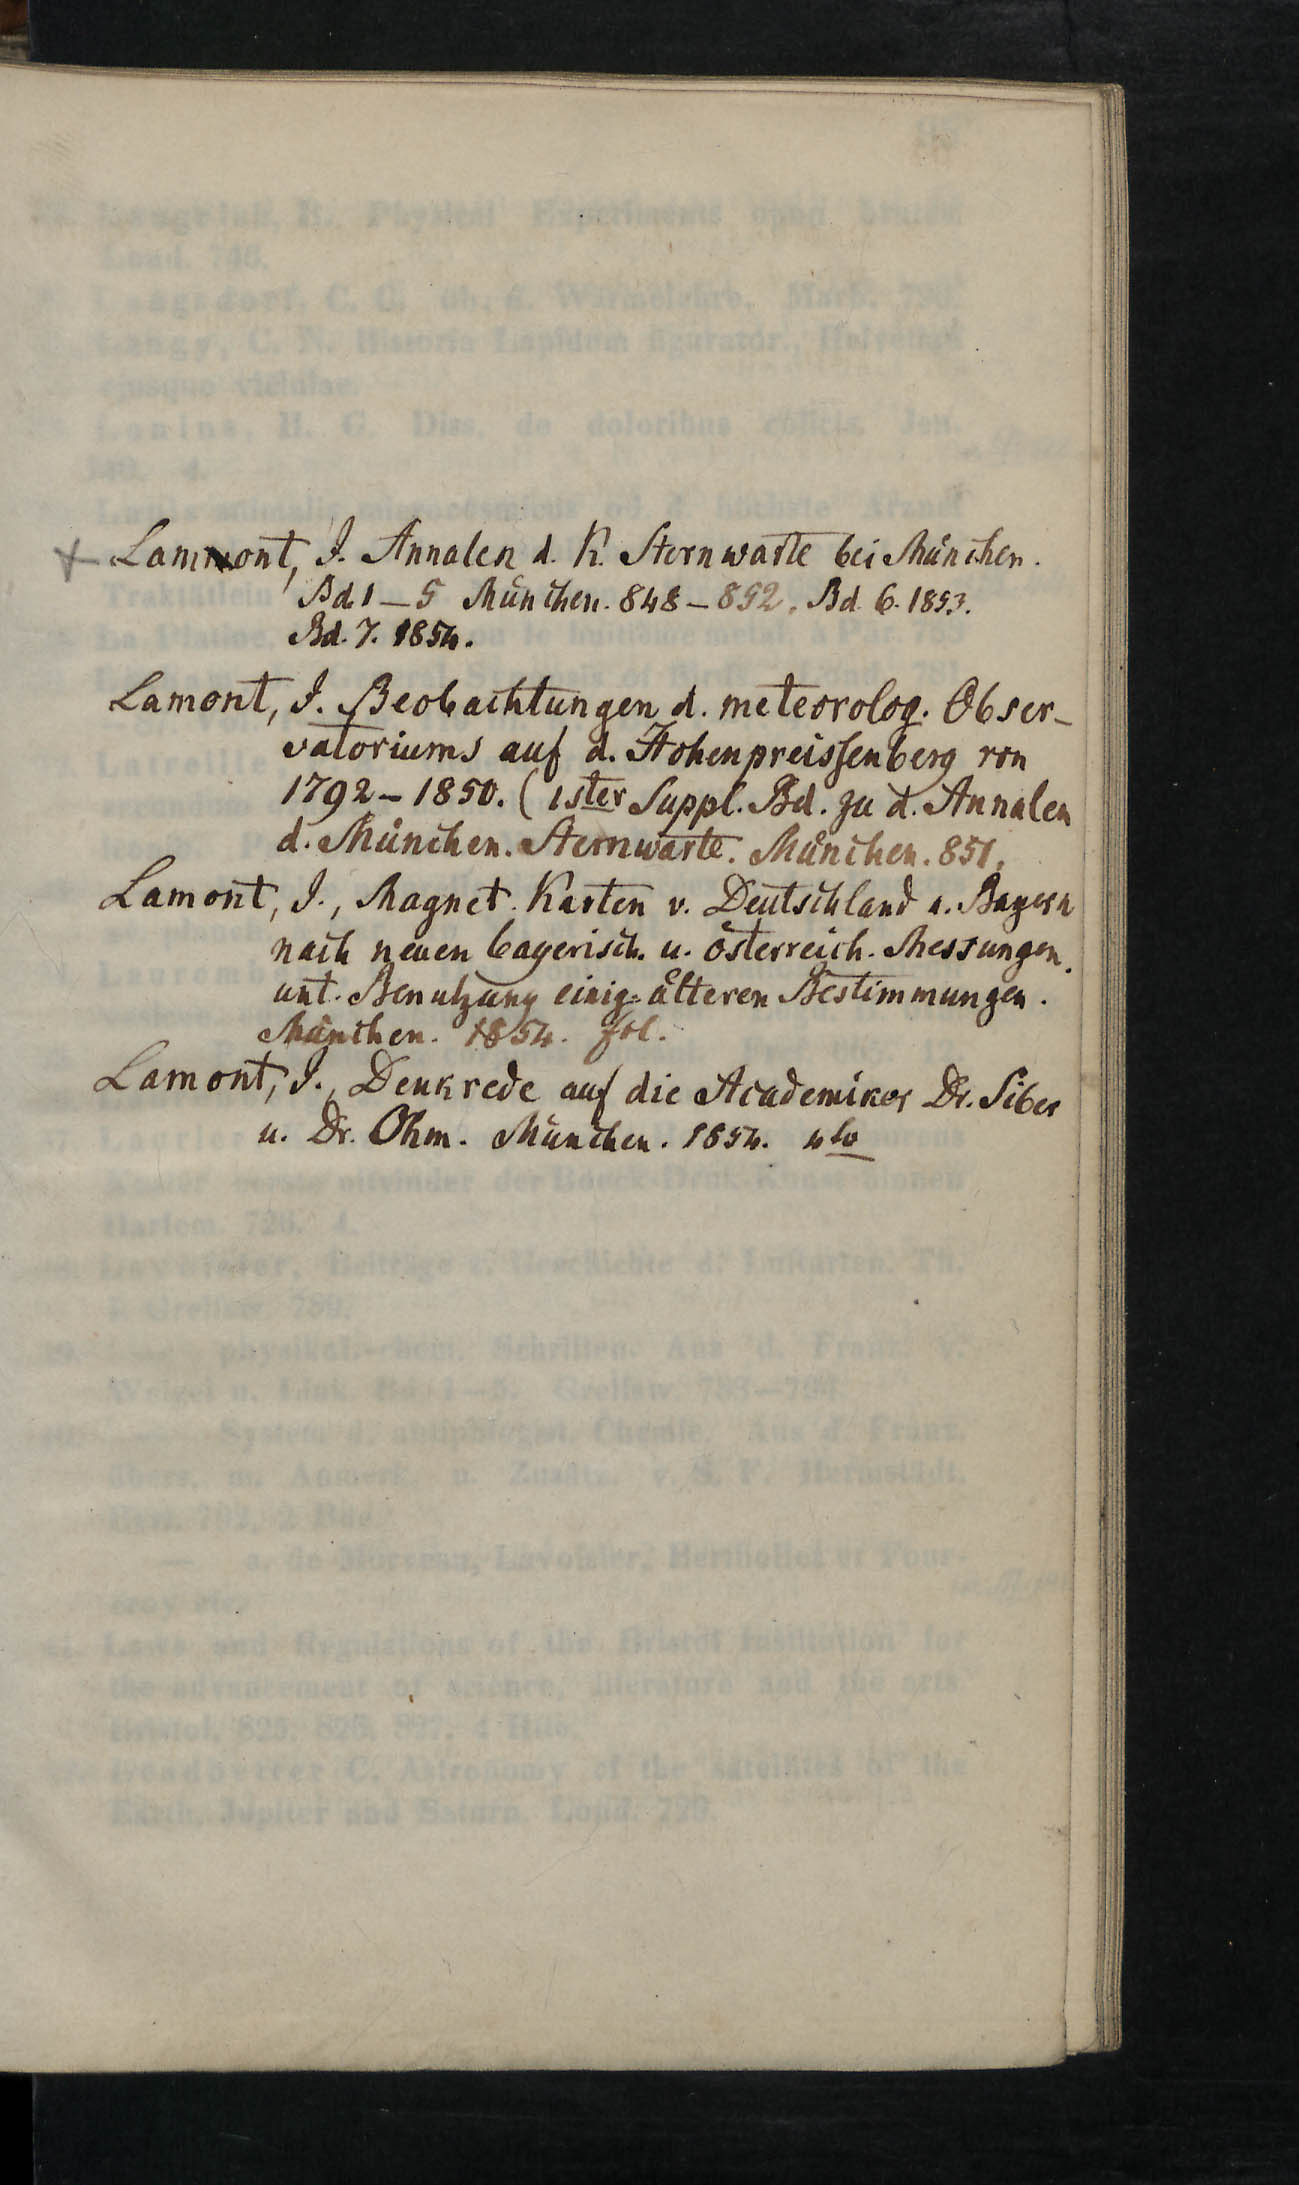 Lamont, J. Annalen d. K. Sternwarte bei München.
Bd 1 — 5 München. 848 – 852. Bd. 6. 1853.
Bd. 7. 1854.
Lamont, J. Beobachtungen d. meteorolog. Obser-
vatoriums auf d. Hohenpreissenberg von
1792 – 1850. (1ster Suppl. Bd. zu d. Annalen
d. München. Sternwarte. München. 851.
Lamont, J., Magnet. Karten v. Deutschland u. Bayern
nach neuen bayerisch. u. österreich. Messungen.
unt. Benutzung einig. älteren Bestimmungen.
München. 1854. fol.
Lamont, J., Denkrede auf die Academiker Dr. Siber
u. Dr. Ohm. München. 1854. 4to